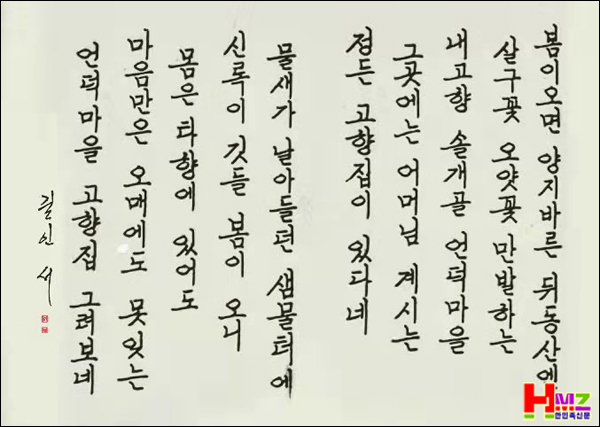 봄이오면 양지바른 뒤동산에
살구꽃 오얏꽃 만발하는
내고향 솔개골 언덕마을
그곳에는 어머님 계시는
정든 고향집이 있다네
물새가 날아들던 샘물터에
신록이 깃들 봄이 오니
몸은 타향에 있어도
마음만은 오매에도 못잊는
언덕마을 고향집 그려보네
필인 서
HMZ
한민족신문